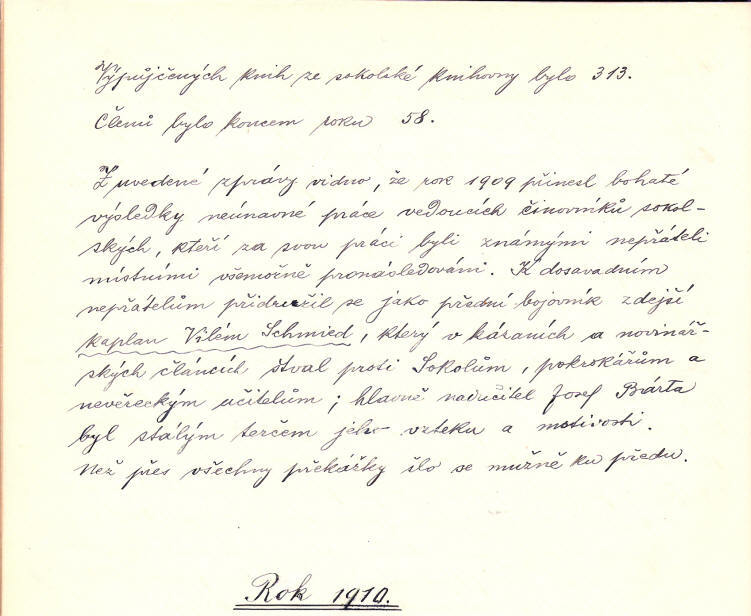 Výpůjčených knih ze sokolské knihovny bylo 313.
Členů bylo koncem roku 58.
Z uvedené zprávy vidno, že rok 1909 přinesl bohaté
výsledky neúnavné práce vedoucích činovníků sokol-
ských, kteří za svou práci byli známými nepřáteli
místními všemožně pronásledováni. K dosavadním
nepřátelům přidružil se jako přední bojovník zdejší
kaplan Vilém Schmied, který v kázaních a novinář-
ských článcích štval proti Sokolům, pokrokářům a
nevěreckým učitelům; hlavně nadučitel Josef Bárta
byl stálým terčem jeho vzteku a mstivosti.
Než přes všechny překážky šlo se mužně ku předu.
Rok 1910.